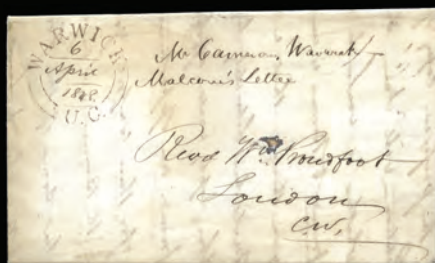 WARWICK
6
April
1848
U.C.
Mr Cameron, Warwick
Malcom's Letter
Revd Wm Proudfoot
London
C.W.